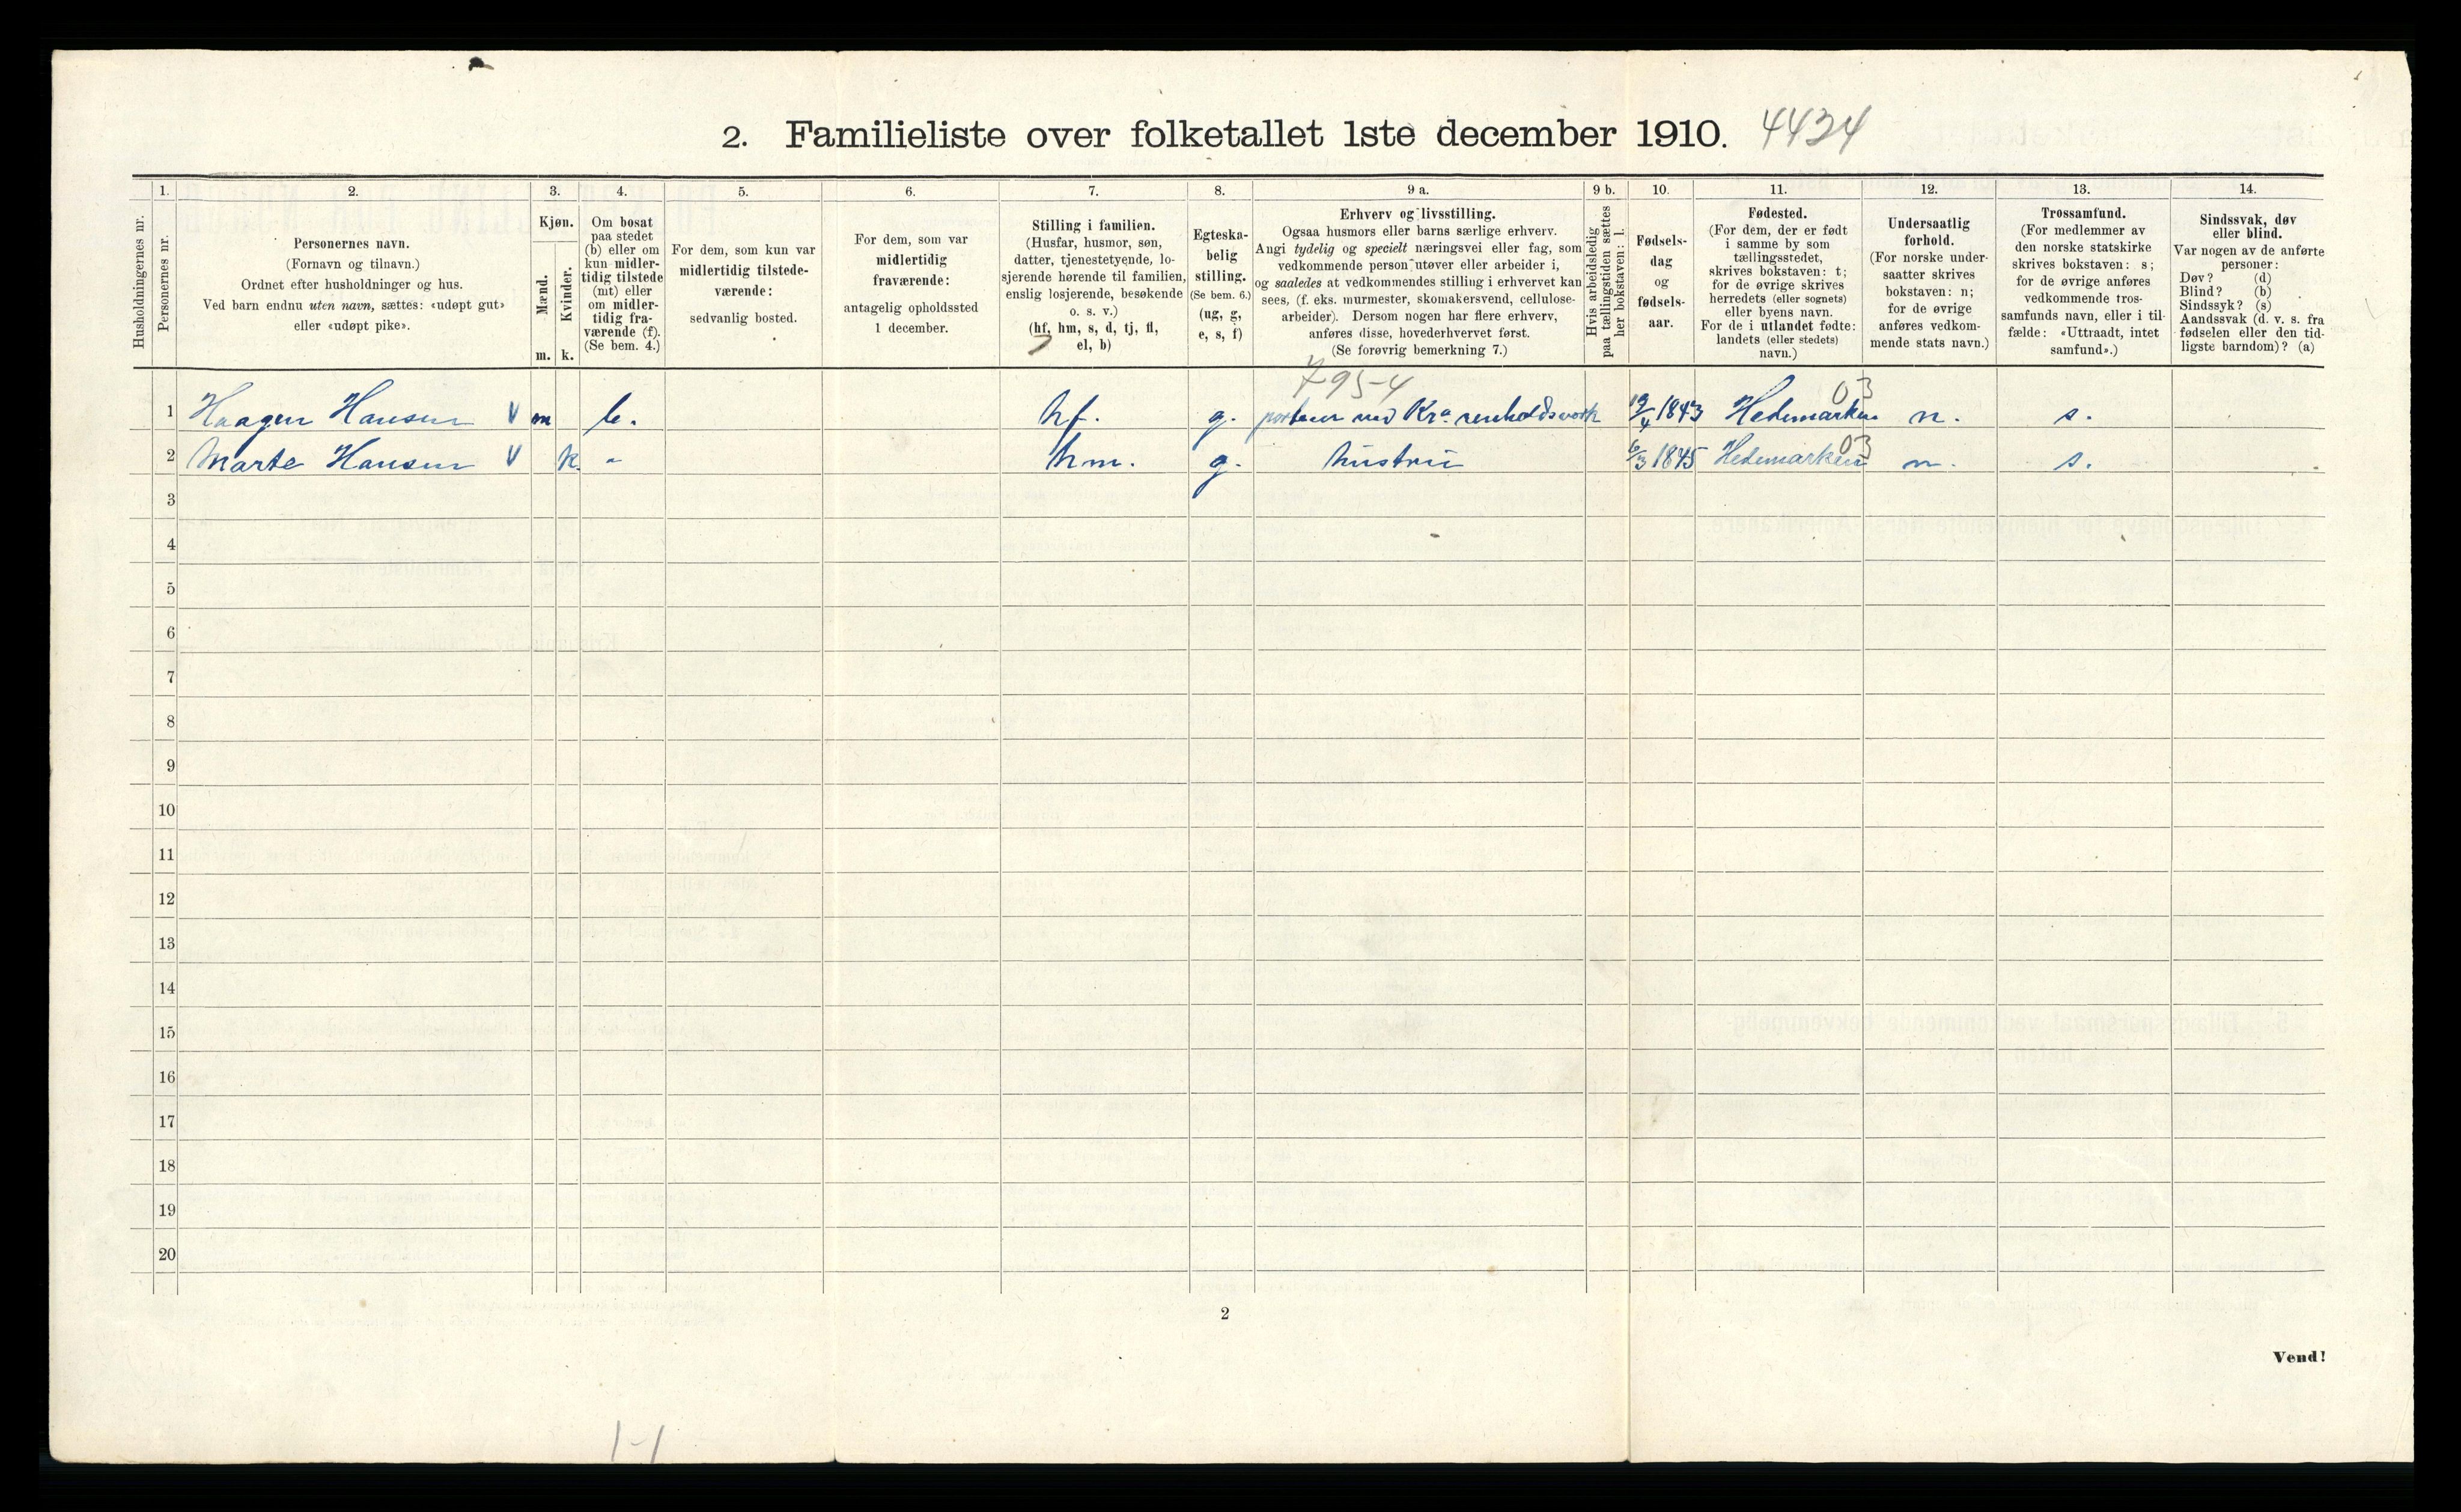 2. Familieliste over folketallet 1ste december 1910. 4434
Husholdningernes nr.
1.
Personernes nr.
2.
Personernes navn.
(Fornavn og tilnavn.)
Ordnet efter husholdninger og hus.
Ved barn endnu uten navn, sættes: «udøpt gut»
eller «udøpt pike».
3.
Kjøn.
Mænd.
Kvinder.
m. k.
4.
Om bosat
paa stedet
(b) eller om
kun midler-
tidig tilstede
(mt) eller
om midler-
tidig fra-
værende (f).
(Se bem. 4.)
5.
For dem, som kun var
midlertidig tilstede-
værende:
sedvanlig bosted.
6.
For dem, som var
midlertidig
fraværende:
antagelig opholdssted
1 december.
7.
Stilling i familien.
(Husfar, husmor, søn,
datter, tjenestetyende, lo-
sjerende hørende til familien,
enslig losjerende, besøkende
o. s. v.)
(hf, hm, s, d, tj, fl,
el, b)
8.
Egteska-
belig
stilling.
(Se bem. 6.)
(ug, g,
e, s, f)
9 a.
Erhverv og livsstilling.
Ogsaa husmors eller barns særlige erhverv.
Angi tydelig og specielt næringsvei eller fag, som
vedkommende person utøver eller arbeider i,
og saaledes at vedkommendes stilling i erhvervet kan
sees, (f. eks. murmester, skomakersvend, cellulose-
arbeider). Dersom nogen har flere erhverv,
anføres disse, hovederhvervet først.
(Se forøvrig bemerkning 7.)
9 b.
Hvis arbeidsledig
paa tællingstiden sættes
her bokstaven: l.
10.
Fødsels-
dag
og
fødsels-
aar.
11.
Fødested.
(For dem, der er født
i samme by som
tællingsstedet,
skrives bokstaven: t;
for de øvrige skrives
herredets (eller sognets)
eller byens navn.
For de i utlandet fødte:
landets (eller stedets)
navn.)
12.
Undersaatlig
forhold.
(For norske under-
saatter skrives
bokstaven: n;
for de øvrige
anføres vedkom-
mende stats navn.)
13.
Trossamfund.
(For medlemmer av
den norske statskirke
skrives bokstaven: s;
for de øvrige anføres
vedkommende tros-
samfunds navn, eller i til-
fælde: «Uttraadt, intet
samfund».)
14.
Sindssvak, døv
eller blind.
Var nogen av de anførte
personer:
Døv? (d)
Blind? (b)
Sindssyk? (s)
Aandssvak (d. v. s. fra
fødselen eller den tid-
ligste barndom)? (a)
795-4 03
1 Haagen Hansen V m b. hf. g. ved Kra. renholdsverk 1843 Hedemarken n. s.
03
2 Marte Hansen V k. " hm. g. hustru 6/3 1845 Hedemarken n. s.
3
4
5
6
7
8
9
10
11
12
13
14
15
16
17
18
19
20
2
Vend!
1-1